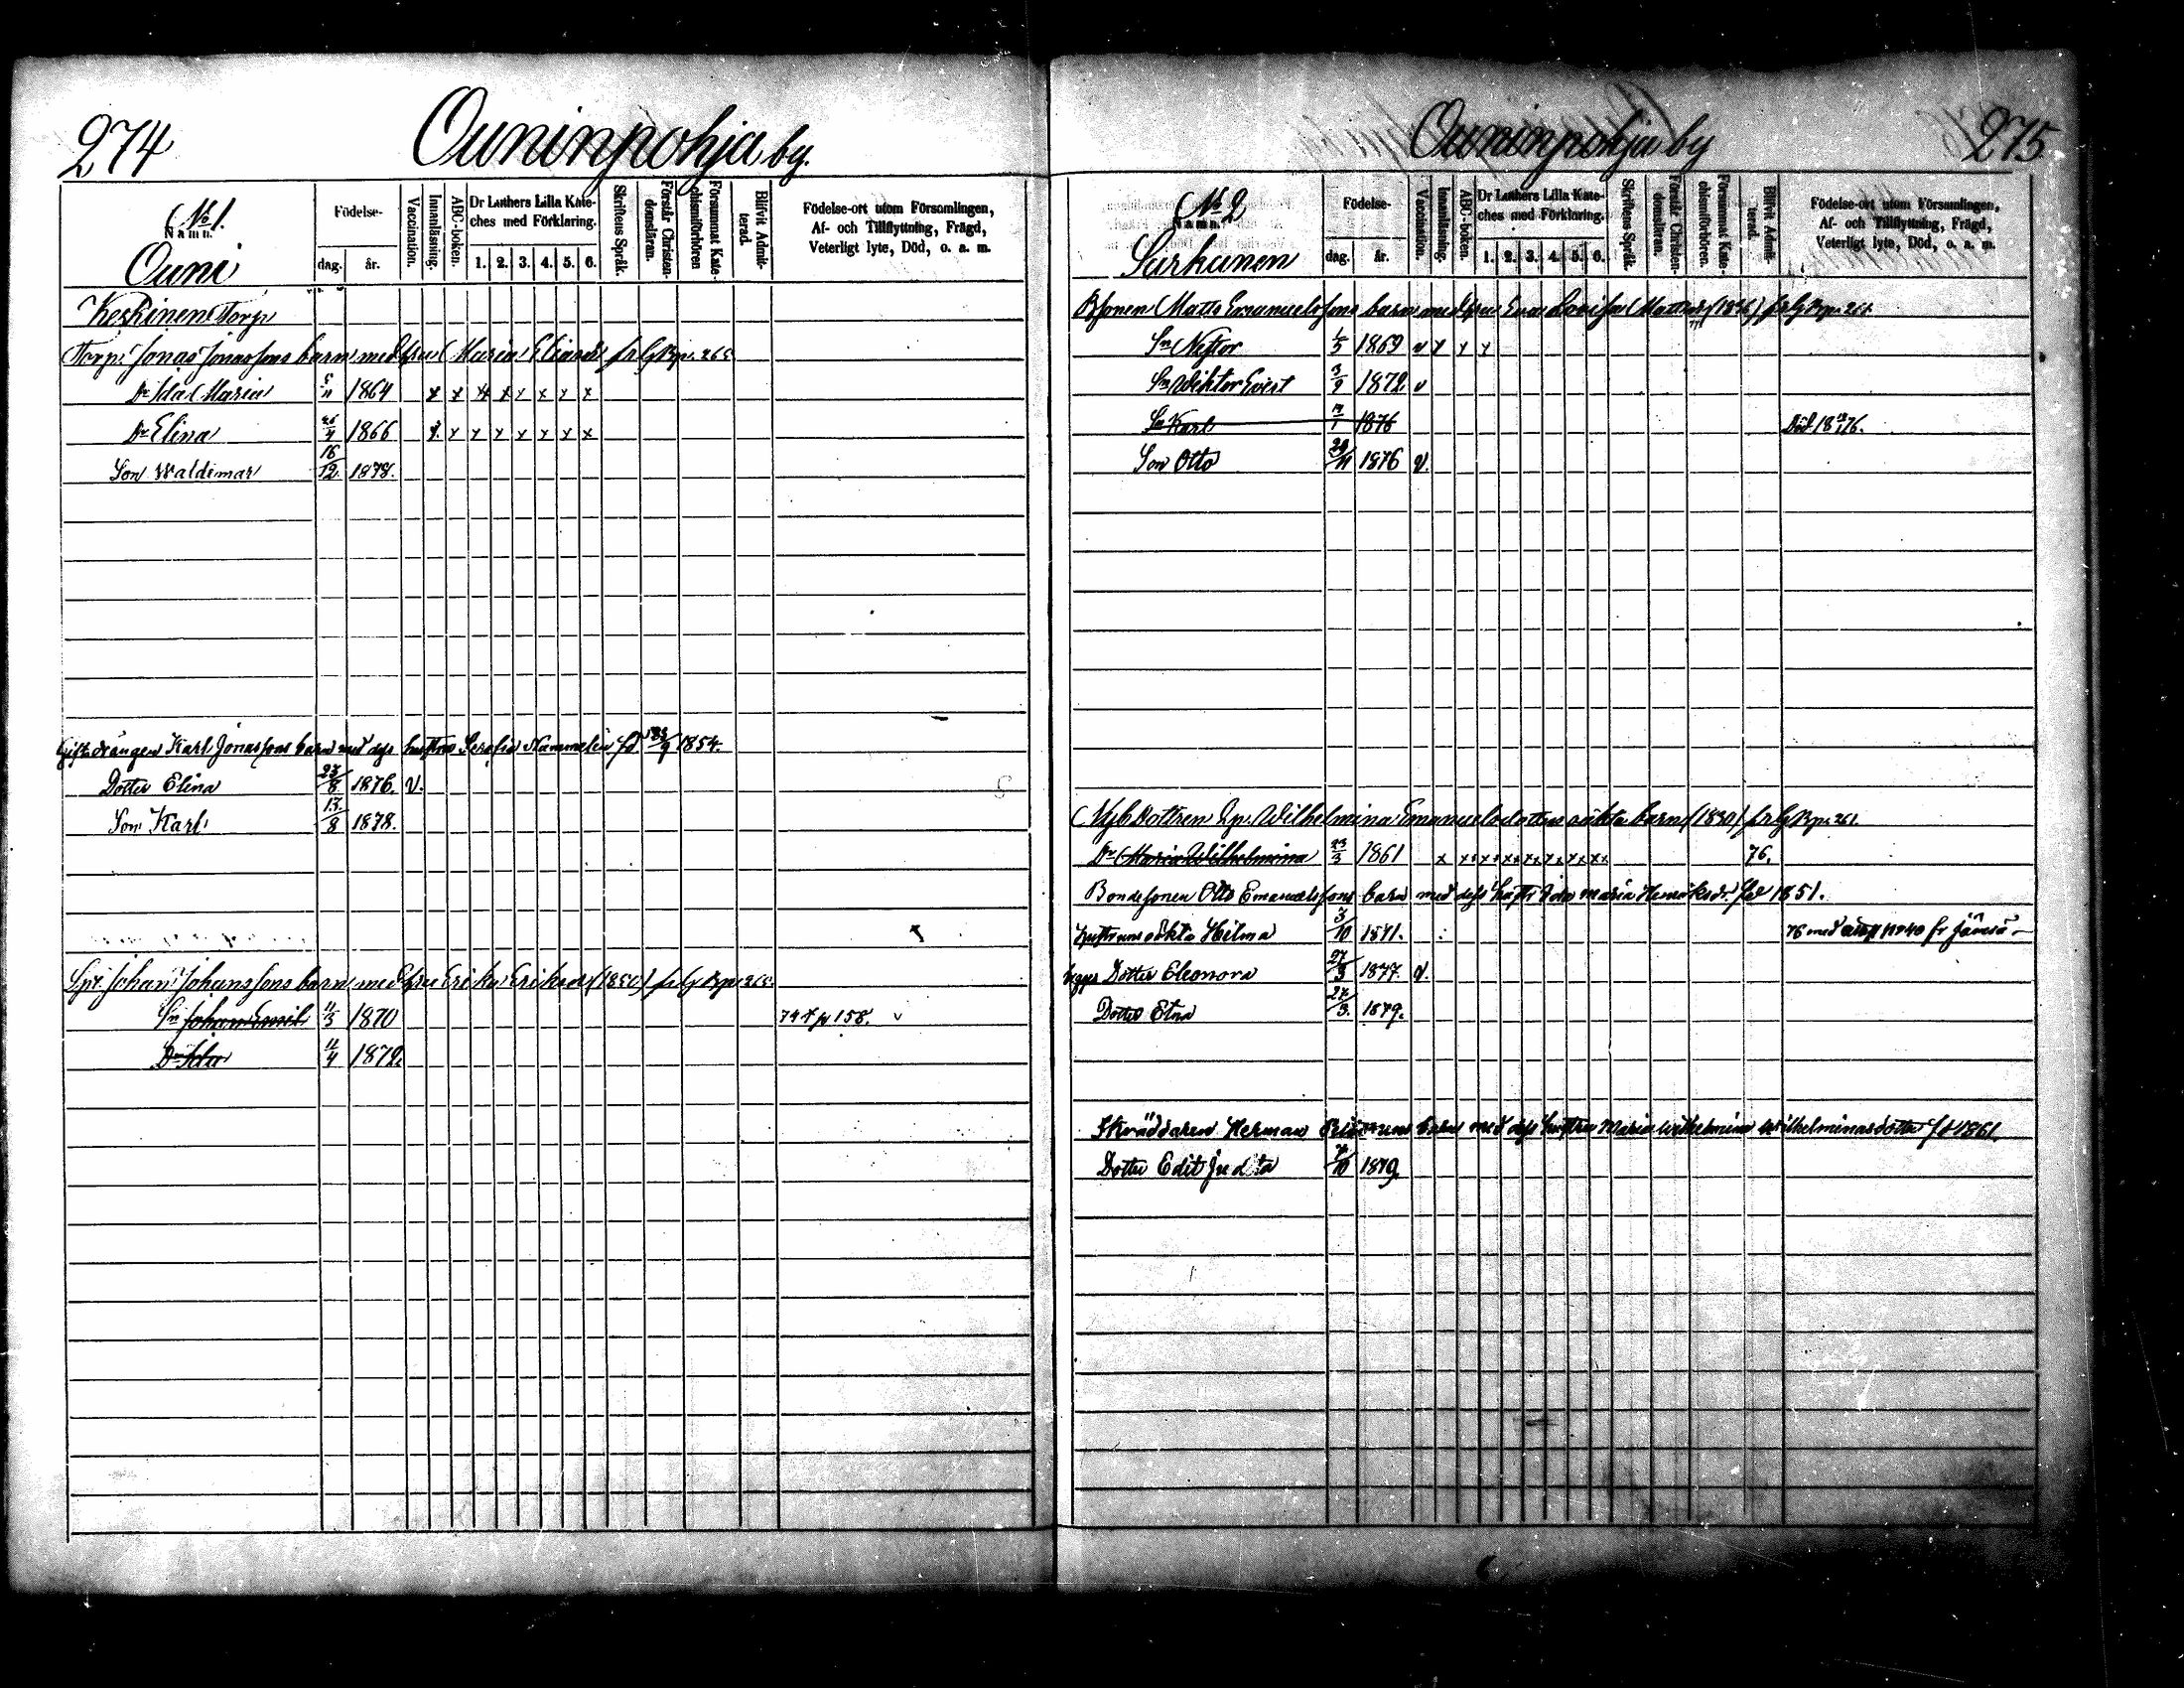 274
Ouninpohja by.
No 1.
Namn.
Ouni
Födelse-
dag. år.
Vaccination.
Innanläsning.
ABC-boken.
Dr Luthers Lilla Kate-
ches med Förklaring.
1. 2. 3. 4. 5. 6.
Skriftens Språk.
Förstår Christen-
domsläran.
Försummat Kate-
chismiförhören
Blifvit Admit-
terad.
Födelse-ort utom Församlingen,
Af- och Tillflyttning, Frägd,
Veterligt lyte, Död, o. a. m.
Keskinen Torp
Torp. Jonas Jonassons barn med hru Maria Eliasdr
Dr Ida Maria 5/11 1864 x x x x x x x x
Dr Elina 1866 x x x x x x x x
Son Waldemar 16/12. 1878.
drängen Karl Jonassons barn med dess hustru Serafia Nummelin fd 1854.
Dotter Elina 27/8 1876. v.
Son Karl 13/8 1878.
Johan Johanssons barn med hru Erika Eriksdr (1850)
Sn Johan Emil 11/3 1870 158. v
Dr Ida 11/4 1872.
Ouninpohja by
275
No 2
Namn.
Sarkanen
Födelse-
dag. år.
Vaccination.
Innanläsning.
ABC-boken.
Dr Luthers Lilla Kate-
ches med Förklaring.
1. 2. 3. 4. 5. 6.
Skriftens Språk.
Förstår Christen-
domsläran.
Försummat Kate-
chismiförhören.
Blifvit Admit-
terad.
Födelse-ort utom Församlingen,
Af- och Tillflyttning, Frägd,
Veterligt lyte, Död, o. a. m.
Bsonen Matts Emanuelssons barn med hru Eva Lovisa Mattsdr
Sn Nestor 1/5 1869 v y y y
Sn Wiktor Evert 3/9 1872. v
Sn Karl 1876 Död
Son Otto 29/11 1876 v.
Wilhelmina Emanuelsdotters oäkta barn (1830)
Dr Maria Wilhelmina 23/3 1861 x x x x x x x x 76.
Bondesonen Otto Emanuelssons barn med dess hustr Ida Maria Henriksdr. fd 1851.
Hustruns oäkta Hilma 3/10 1871. 76 med attest No 40 fr Jämsä
Dotter Eleonora 27/3 1877. v.
Dotter Etna 27/3. 1879.
Skräddaren Herman barn med dess hustru Maria Wilhelmina Wilhelminasdotter fd 1861.
Dotter Edit Judita 7/10 1879.